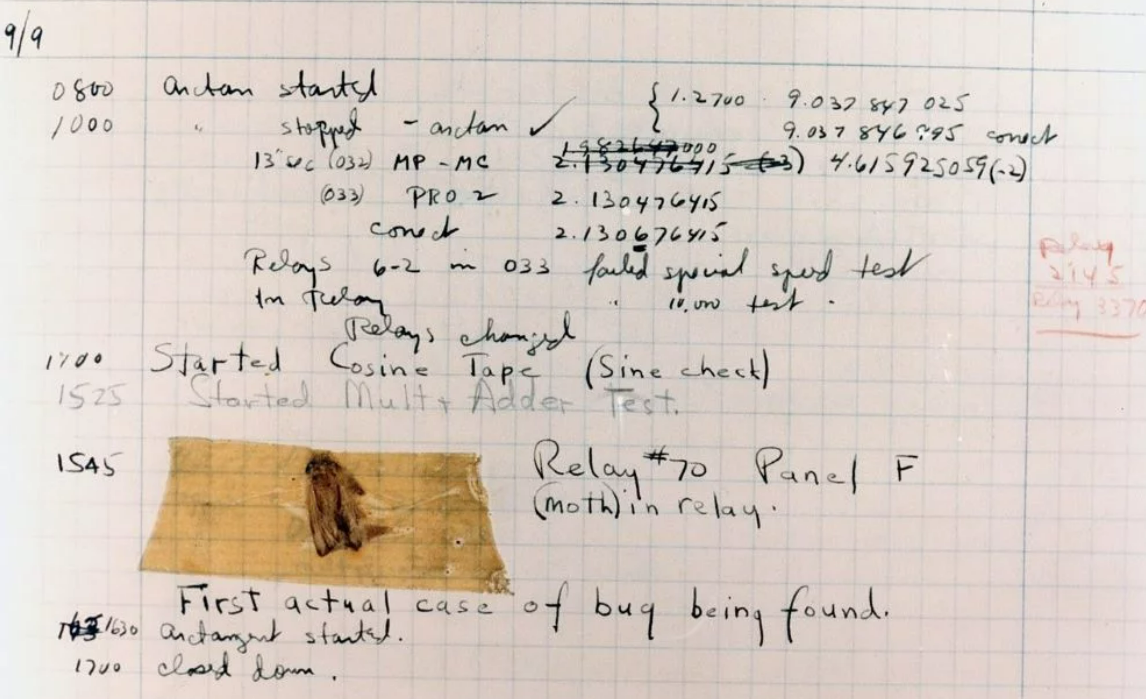 9/9
0800 antan started { 1.2700 9.037 847 025
1000 " stopped - antan ✓ 9.037 846 995 conect
13"sec (032) MP - MC 2.130476415 (-3) 4.615925059(-2)
(033) PRO 2 2.130476415
conect 2.130676415
Relays 6-2 in 033 failed special speed test
In Relay " 10,000 test.
Relay
2145
Relay 3370
Relays changed
1100 Started Cosine Tape (Sine check)
1525 Started Mult + Adder Test.
1545 Relay #70 Panel F
(moth) in relay.
First actual case of bug being found.
1630 antangent started.
1700 closed down.